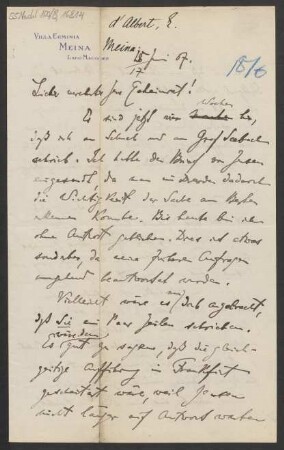 d'Albert, E.
VILLA ERMINIA
MEINA
LAGO MAGGIORE
Meina, 15 Juni 07.
17
18/6
Lieber verehrter Herr Geheimrat!
Wochen
Es sind jetzt vier her,
daß ich an Schuch und an Graf Seebach
schrieb. Ich hatte den Brief von Jensen
eingesandt, da man
die Wichtigkeit der Sache am Besten
erkennen konnte. Bis heute bin ich
ohne Antwort geblieben. Dies ist etwas
sonderbar, da meine früheren Anfragen
umgehend beantwortet wurden.
Vielleicht wäre es doch angebracht,
daß Sie ein Paar Zeilen schrieben.
Es gut zu sagen, daß die gleich-
zeitige Aufführung in Frankfurt
gescheitert wäre, weil Jensen
nicht länger auf Antwort warten